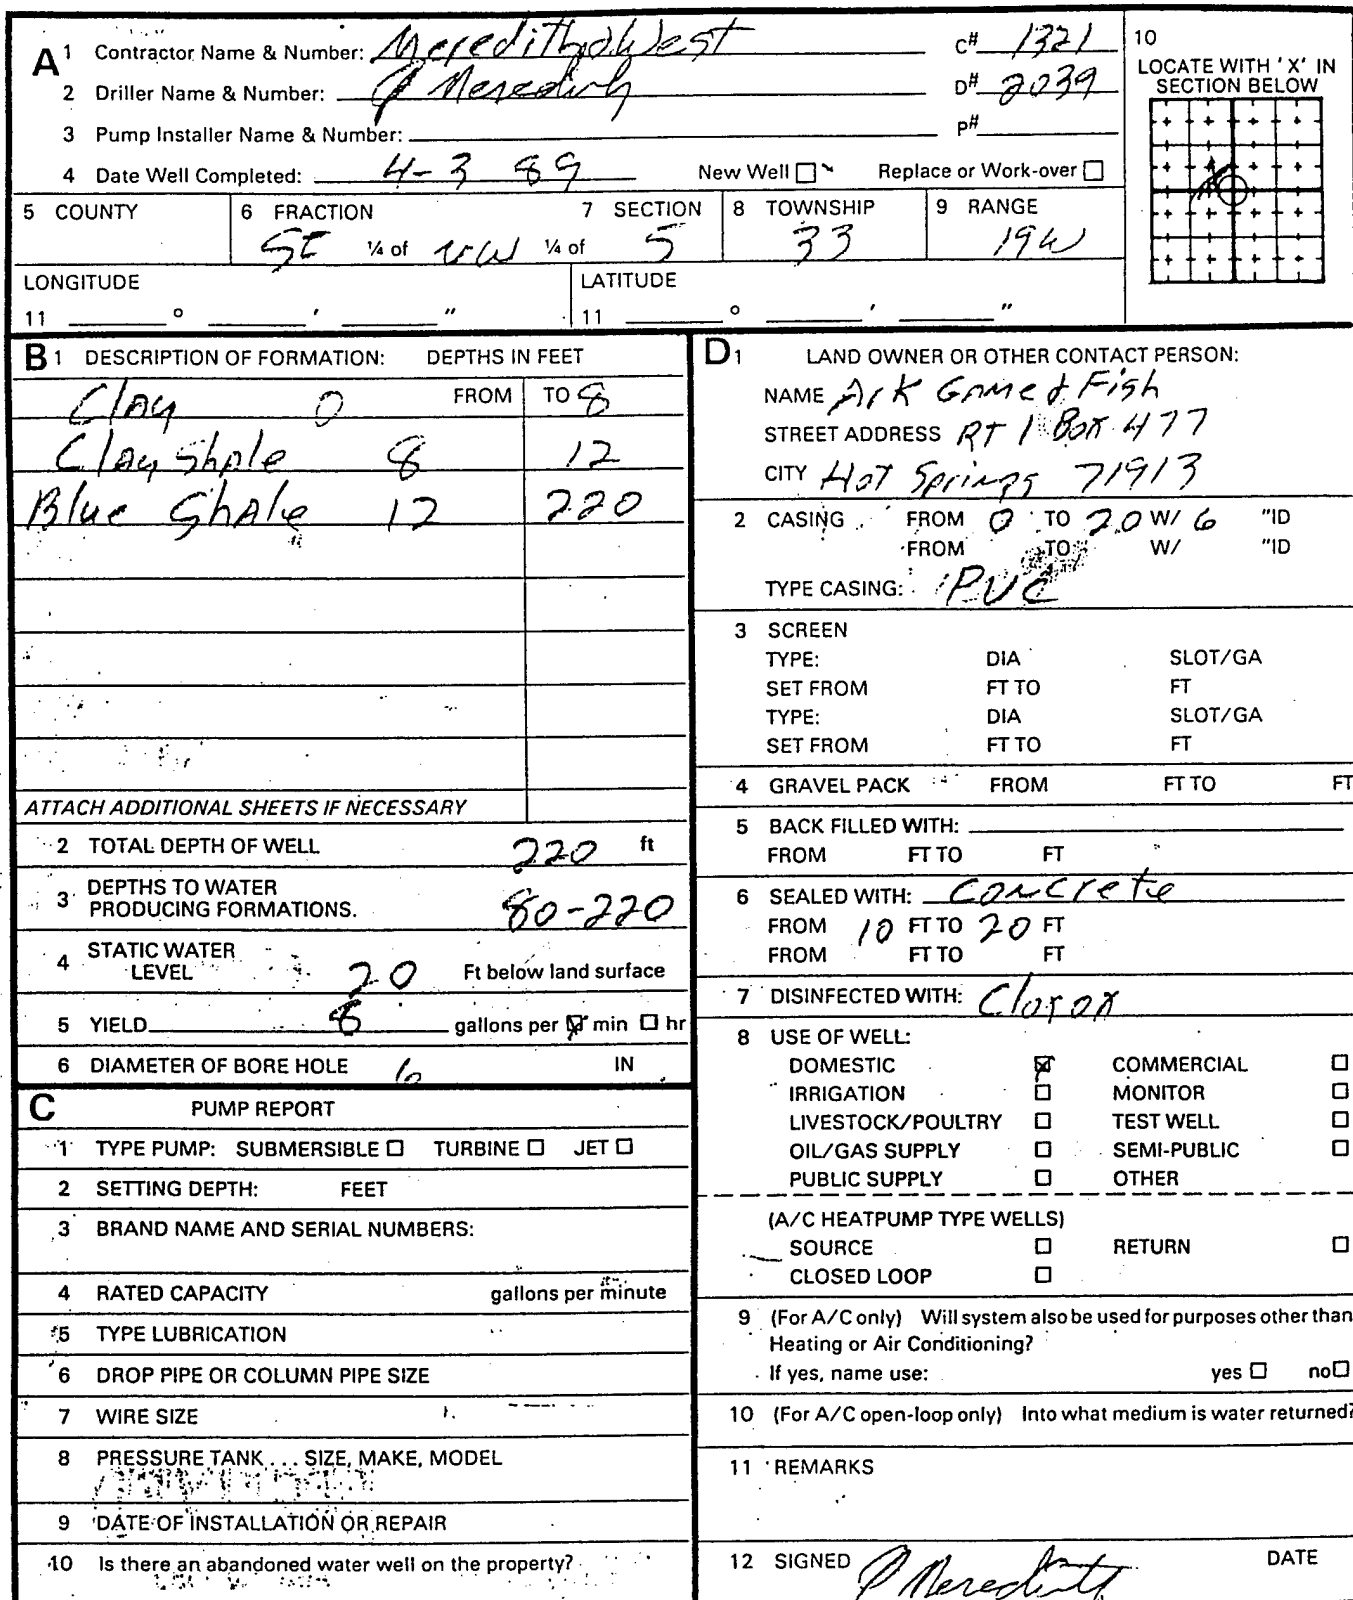 A 1 Contractor Name & Number: Meredith & West C# 1321
2 Driller Name & Number: P Meredith D# 2039
3 Pump Installer Name & Number: P#
4 Date Well Completed: 4-3 89 New Well Replace or Work-over
10 LOCATE WITH 'X' IN
SECTION BELOW
5 COUNTY 6 FRACTION 7 SECTION 8 TOWNSHIP 9 RANGE
SE 1/4 of NW 1/4 of 5 33 19W
LONGITUDE LATITUDE
11 ° ' " 11 ° ' "
B 1 DESCRIPTION OF FORMATION: DEPTHS IN FEET
Clay 0 FROM TO 8
Clay Shale 8 12
Blue Shale 12 220
ATTACH ADDITIONAL SHEETS IF NECESSARY
2 TOTAL DEPTH OF WELL 220 ft
3 DEPTHS TO WATER
PRODUCING FORMATIONS. 80-220
4 STATIC WATER
LEVEL 20 Ft below land surface
5 YIELD 8 gallons per min hr
6 DIAMETER OF BORE HOLE 6 IN
C PUMP REPORT
1 TYPE PUMP: SUBMERSIBLE TURBINE JET
2 SETTING DEPTH: FEET
3 BRAND NAME AND SERIAL NUMBERS:
4 RATED CAPACITY gallons per minute
5 TYPE LUBRICATION
6 DROP PIPE OR COLUMN PIPE SIZE
7 WIRE SIZE
8 PRESSURE TANK . . . SIZE, MAKE, MODEL
9 DATE OF INSTALLATION OR REPAIR
10 Is there an abandoned water well on the property?
D 1 LAND OWNER OR OTHER CONTACT PERSON:
NAME Ark Game & Fish
STREET ADDRESS RT 1 Box 477
CITY Hot Springs 71913
2 CASING FROM 0 TO 20 W/ 6 "ID
FROM TO W/ "ID
TYPE CASING: PVC
3 SCREEN
TYPE: DIA SLOT/GA
SET FROM FT TO FT
TYPE: DIA SLOT/GA
SET FROM FT TO FT
4 GRAVEL PACK FROM FT TO FT
5 BACK FILLED WITH:
FROM FT TO FT
6 SEALED WITH: Concrete
FROM 10 FT TO 20 FT
FROM FT TO FT
7 DISINFECTED WITH: Clorox
8 USE OF WELL:
DOMESTIC COMMERCIAL
IRRIGATION MONITOR
LIVESTOCK/POULTRY TEST WELL
OIL/GAS SUPPLY SEMI-PUBLIC
PUBLIC SUPPLY OTHER
(A/C HEATPUMP TYPE WELLS)
SOURCE RETURN
CLOSED LOOP
9 (For A/C only) Will system also be used for purposes other than
Heating or Air Conditioning?
If yes, name use: yes no
10 (For A/C open-loop only) Into what medium is water returned?
11 REMARKS
12 SIGNED P Meredith DATE